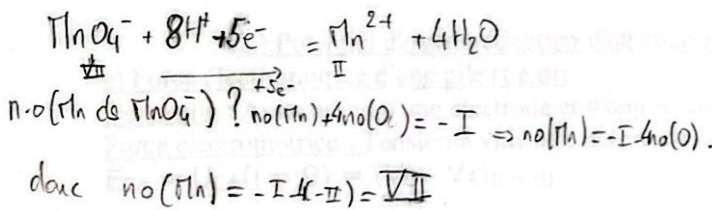 MnO₄⁻ + 8H⁺ + 5e⁻ = Mn²⁺ + 4H₂O
VII II
+5e⁻
n.o(Mn ds MnO₄⁻) ? no(Mn)+4no(O) = -I ⇒ no(Mn) = -I-4no(O).
donc no(Mn) = -I-4(-II) = VII